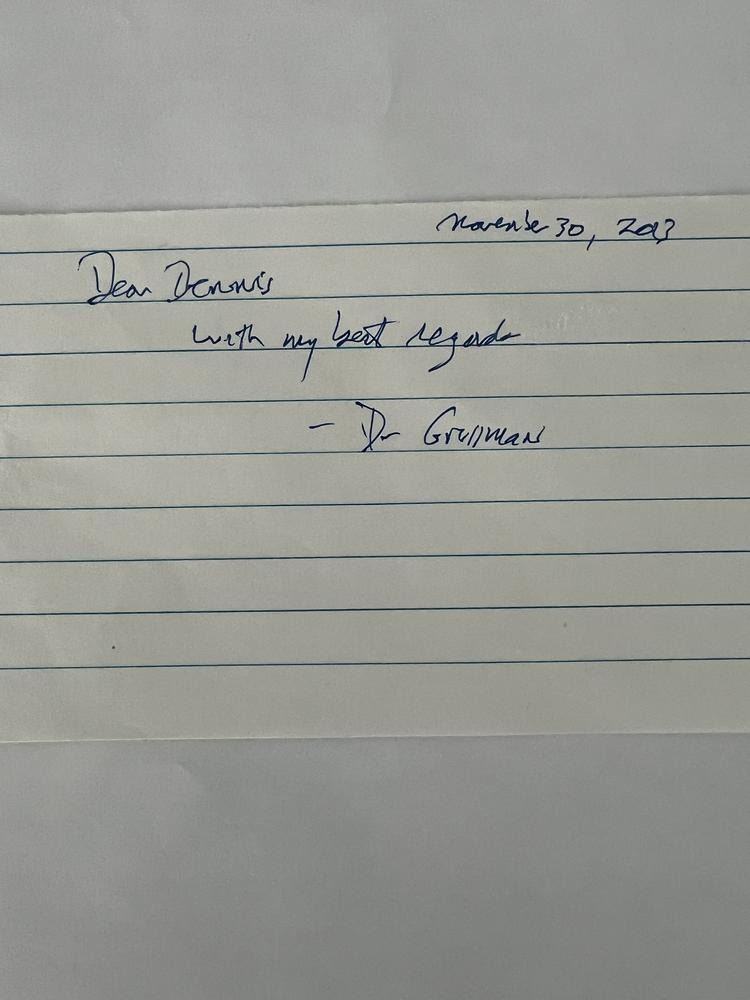 November 30, 2013
Dear Dennis
with my best regards
- Dr Grossman